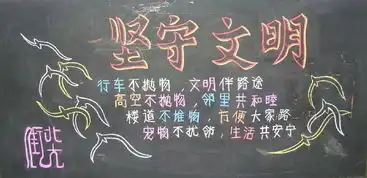 坚守文明
行车不抛物，文明伴路途
高空不抛物，邻里共和睦
楼道不堆物，方便大家路
宠物不扰邻，生活共安宁